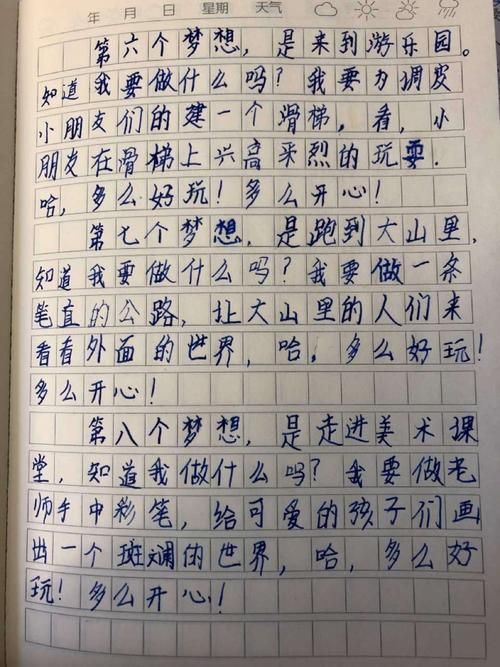 年 月 日 星期 天气
第六个梦想，是来到游乐园。
知道我要做什么吗？我要为调皮
小朋友们的建一个滑梯，看，小
朋友在滑梯上兴高采烈的玩耍.
哈，多么好玩！多么开心！
第七个梦想，是跑到大山里，
知道我要做什么吗？我要做一条
笔直的公路，让大山里的人们来
看看外面的世界，哈，多么好玩！
多么开心！
第八个梦想，是走进美术课
堂，知道我做什么吗？我要做老
师手中彩笔，给可爱的孩子们画
出一个斑斓的世界，哈，多么好
玩！多么开心！